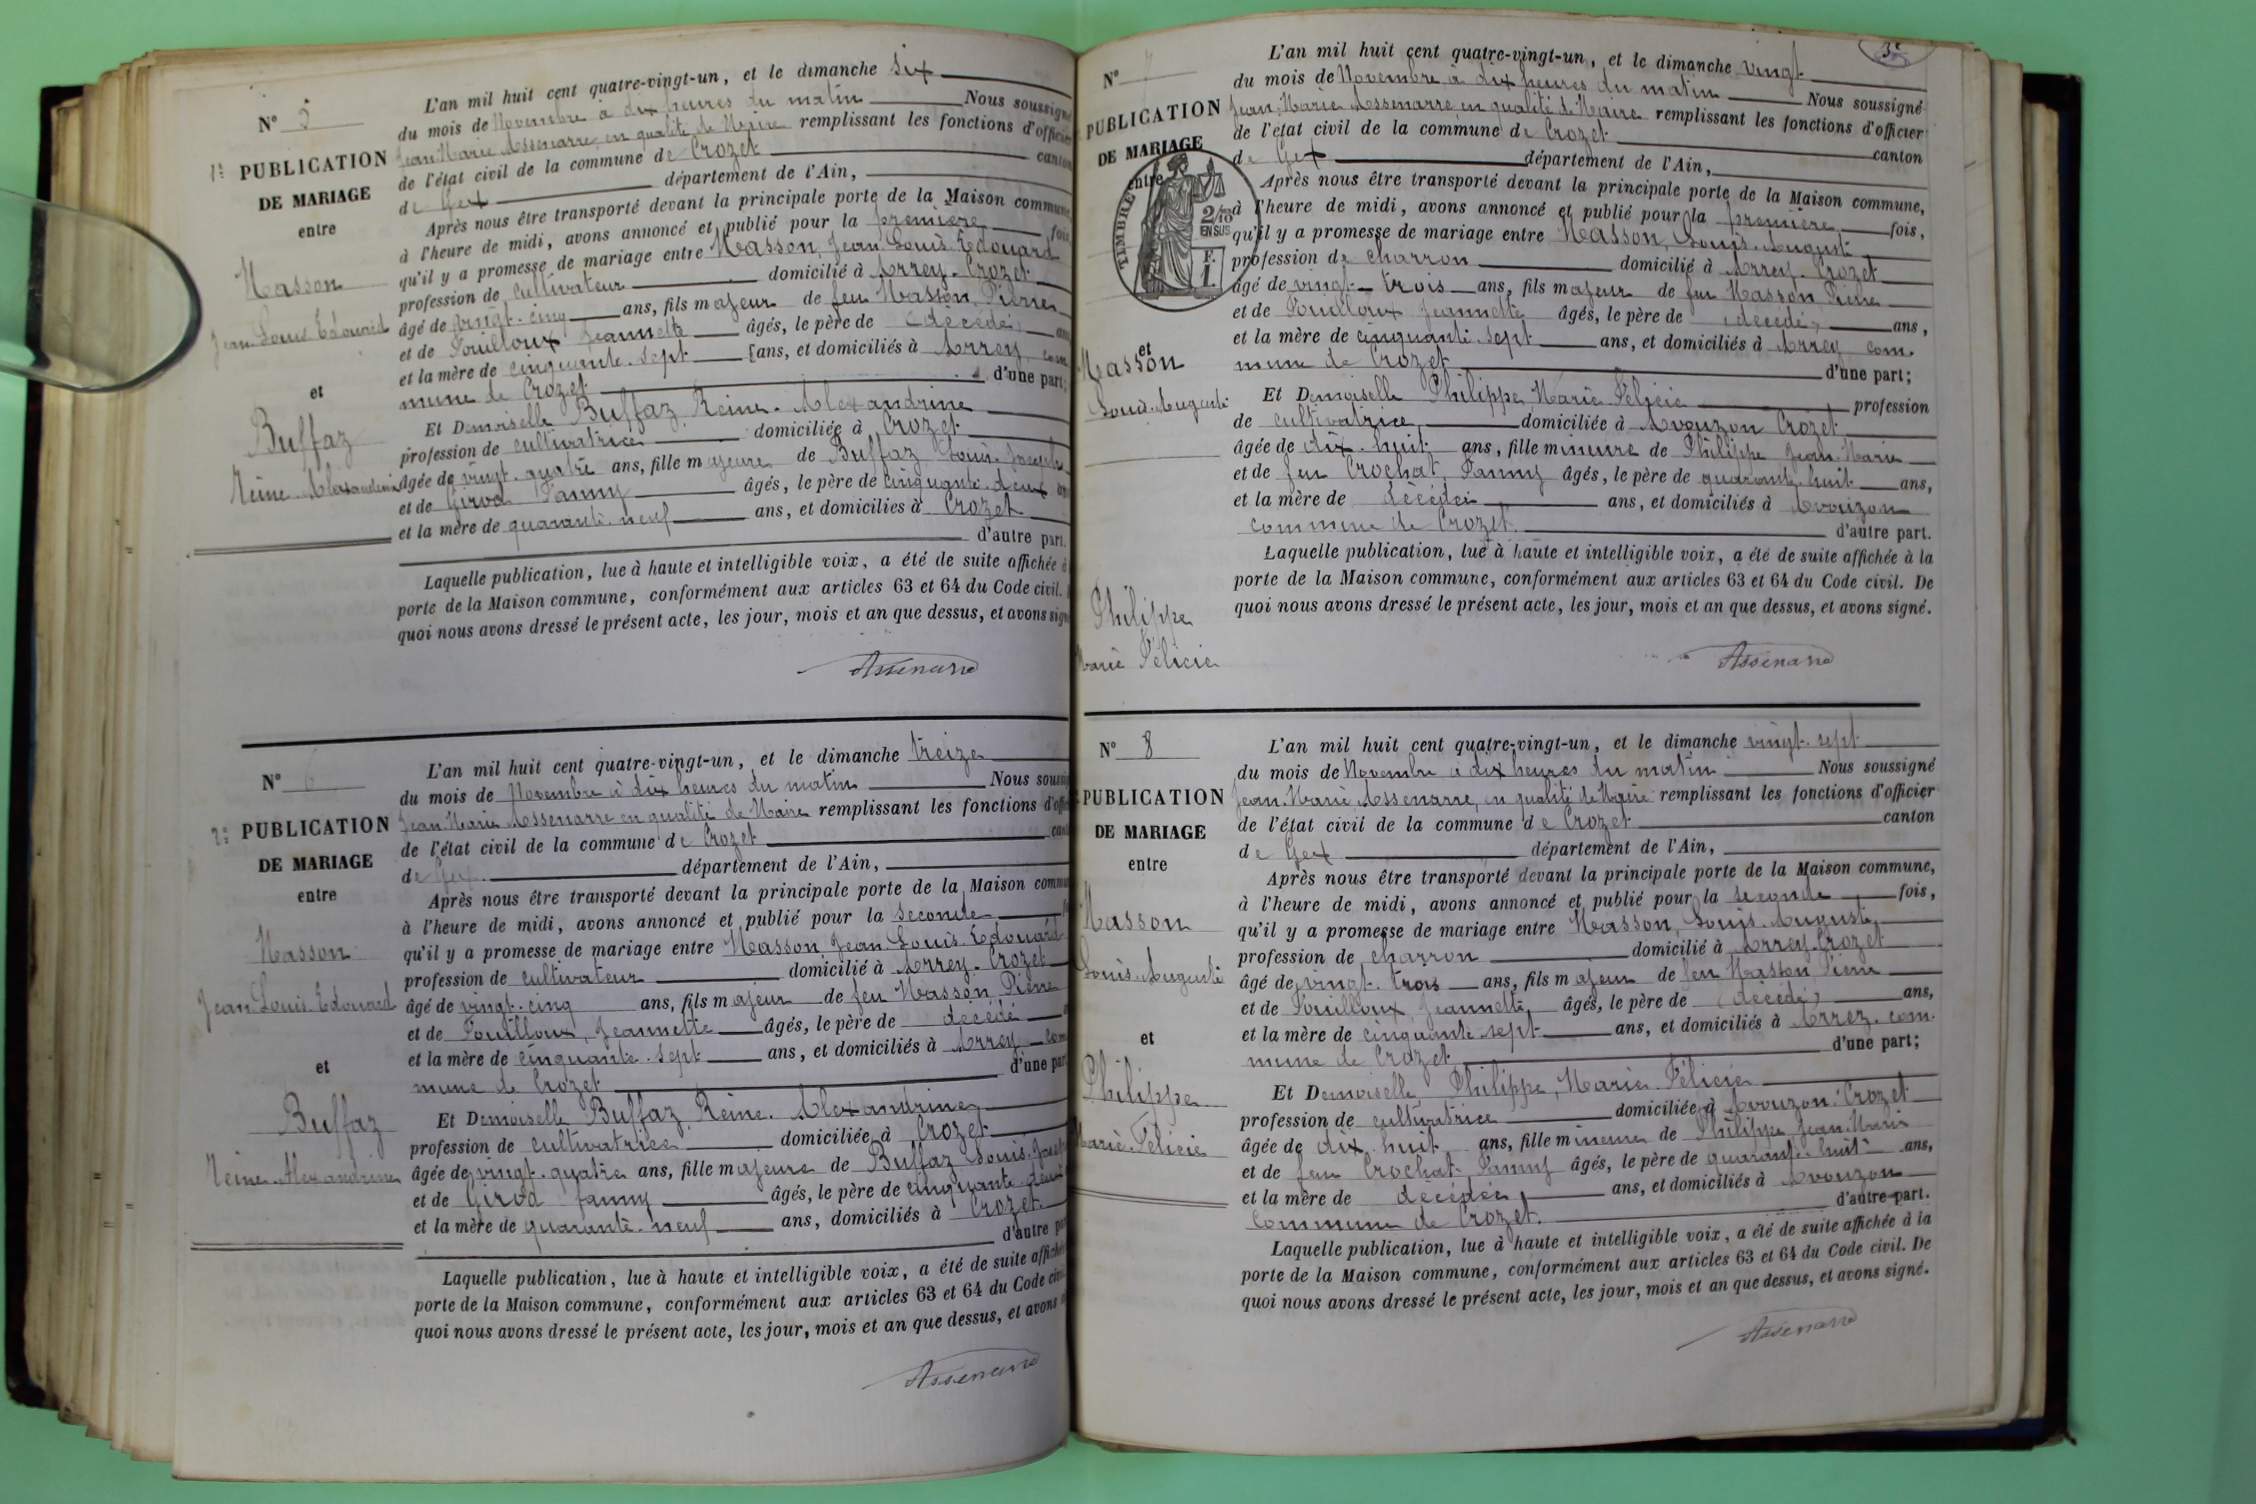 N° 5
1re PUBLICATION
DE MARIAGE
entre
Masson
Jean Louis Edouard
et
Buffaz
Reine Alexandrine
L'an mil huit cent quatre-vingt-un, et le dimanche six
du mois de Novembre à dix heures du matin Nous soussigné
Jean Marie Assenarre, en qualité de Maire remplissant les fonctions d'officier
de l'état civil de la commune de Crozet canton
de Gex département de l'Ain,
Après nous être transporté devant la principale porte de la Maison commune,
à l'heure de midi, avons annoncé et publié pour la première fois,
qu'il y a promesse de mariage entre Masson, Jean Louis Edouard
profession de cultivateur domicilié à Arrey-Crozet
âgé de vingt-cinq ans, fils majeur de feu Masson, Pierre
et de Fouilloux Jeannette âgés, le père de (décédé) ans
et la mère de cinquante-sept ans, et domiciliés à Arrey, com-
mune de Crozet d'une part;
Et Demoiselle Buffaz Reine-Alexandrine
profession de cultivatrice domiciliée à Crozet
âgée de vingt-quatre ans, fille majeure de Buffaz Louis-Joseph
et de Girod Fanny âgés, le père de cinquante-deux ans
et la mère de quarante-neuf ans, et domiciliés à Crozet
d'autre part.
Laquelle publication, lue à haute et intelligible voix, a été de suite affichée à
porte de la Maison commune, conformément aux articles 63 et 64 du Code civil.
quoi nous avons dressé le présent acte, les jour, mois et an que dessus, et avons signé
Assenarre
N° 6
2e PUBLICATION
DE MARIAGE
entre
Masson
Jean Louis Edouard
et
Buffaz
Reine Alexandrine
L'an mil huit cent quatre-vingt-un, et le dimanche treize
du mois de Novembre à dix heures du matin Nous soussi
Jean Marie Assenarre en qualité de Maire remplissant les fonctions d'officier
de l'état civil de la commune de Crozet canton
de Gex. département de l'Ain,
Après nous être transporté devant la principale porte de la Maison commune
à l'heure de midi, avons annoncé et publié pour la seconde
qu'il y a promesse de mariage entre Masson, Jean Louis Edouard
profession de cultivateur domicilié à Arrey-Crozet
âgé de vingt-cinq ans, fils majeur de feu Masson, Pierre
et de Fouilloux, Jeannette âgés, le père de décédé
et la mère de cinquante-sept ans, et domiciliés à Arrey com
mune de Crozet d'une part
Et Demoiselle Buffaz Reine-Alexandrine
profession de cultivatrice domiciliée à Crozet
âgée de vingt-quatre ans, fille majeure de Buffaz Louis-Joseph
et de Girod Fanny âgés, le père de cinquante-deux
et la mère de quarante-neuf ans, domiciliés à Crozet.
d'autre part
Laquelle publication, lue à haute et intelligible voix, a été de suite affichée
porte de la Maison commune, conformément aux articles 63 et 64 du Code civil
quoi nous avons dressé le présent acte, les jour, mois et an que dessus, et avons
Assenarre
N° 7
PUBLICATION
DE MARIAGE
entre
TIMBRE
2/10
EN SUS
F.
1.
et
Masson
Louis-Auguste
Philippe
Marie Félicie
L'an mil huit cent quatre-vingt-un, et le dimanche vingt
du mois de Novembre à dix heures du matin Nous soussigné
Jean-Marie Assenarre en qualité de Maire remplissant les fonctions d'officier
de l'état civil de la commune de Crozet canton
de Gex département de l'Ain,
Après nous être transporté devant la principale porte de la Maison commune,
à l'heure de midi, avons annoncé et publié pour la première fois,
qu'il y a promesse de mariage entre Masson, Louis-August
profession de charron domicilié à Arrey-Crozet
âgé de vingt-trois ans, fils majeur de feu Masson Pierre
et de Fouilloux Jeannette âgés, le père de (décédé) ans,
et la mère de cinquante-sept ans, et domiciliés à Arrey com-
mune de Crozet d'une part;
Et Demoiselle Philippe Marie Félicie profession
de cultivatrice domiciliée à Avouzon Crozet
âgée de dix-huit ans, fille mineure de Philippe Jean-Marie
et de feu Crochat, Fanny âgés, le père de quarante-huit ans,
et la mère de décédée ans, et domiciliés à Avouzon
commune de Crozet. d'autre part.
Laquelle publication, lue à haute et intelligible voix, a été de suite affichée à la
porte de la Maison commune, conformément aux articles 63 et 64 du Code civil. De
quoi nous avons dressé le présent acte, les jour, mois et an que dessus, et avons signé.
Assenarre
N° 8
PUBLICATION
DE MARIAGE
entre
Masson
Louis-Auguste
et
Philippe
Marie-Félicie
L'an mil huit cent quatre-vingt-un, et le dimanche vingt-sept
du mois de Novembre à dix heures du matin Nous soussigné
Jean-Marie Assenarre, en qualité de Maire remplissant les fonctions d'officier
de l'état civil de la commune de Crozet canton
de Gex département de l'Ain,
Après nous être transporté devant la principale porte de la Maison commune,
à l'heure de midi, avons annoncé et publié pour la seconde fois,
qu'il y a promesse de mariage entre Masson, Louis-Auguste
profession de charron domicilié à Arrey-Crozet
âgé de vingt-trois ans, fils majeur de feu Masson Pierre
et de Fouilloux Jeannette âgés, le père de (décédé) ans,
et la mère de cinquante-sept ans, et domiciliés à Arrez. com-
mune de Crozet d'une part;
Et Demoiselle Philippe, Marie-Félicie
profession de cultivatrice domiciliée à Avouzon-Crozet
âgée de dix-huit ans, fille mineure de Philippe Jean-Marie
et de feu Crochat-Fanny âgés, le père de quarante-huit ans,
et la mère de décédée, ans, et domiciliés à Avouzon
commune de Crozet. d'autre part.
Laquelle publication, lue à haute et intelligible voix, a été de suite affichée à la
porte de la Maison commune, conformément aux articles 63 et 64 du Code civil. De
quoi nous avons dressé le présent acte, les jour, mois et an que dessus, et avons signé.
Assenarre